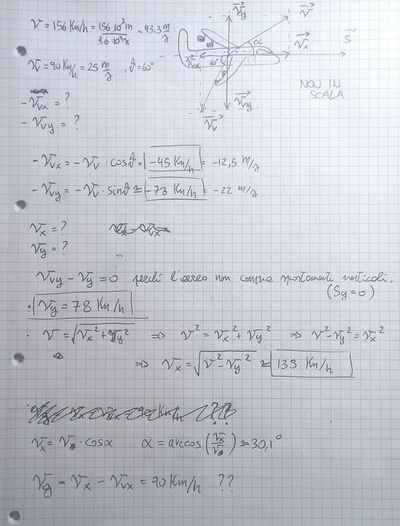 v = 156 Km/h = 156·10³ m / 3,6·10³ s = 43,3 m/s
v̄ᵥ = 90 Km/h = 25 m/s , ϑ̂ = 60°
- v̄ᵥₓ = ?
- v̄ᵥy = ?
v⃗y
v⃗
α
v⃗ₓ
S⃗
v⃗ᵥₓ
60°
v⃗ᵥ
v⃗ᵥy
NON IN
SCALA
- v̄ᵥₓ = - v̄ᵥ · cosϑ̂ = -45 Km/h = -12,5 m/s
- v̄ᵥy = - v̄ᵥ · sinϑ̂ ≅ -78 Km/h = -22 m/s
v̄ₓ = ?
v̄y = ?
v̄ᵥy - v̄y = 0 perché l'aereo non compie spostamenti verticali.
(Sy = 0)
· v̄y = 78 Km/h
· v̄ = √(v̄ₓ² + v̄y²) ⇒ v² = v̄ₓ² + v̄y² ⇒ v² - v̄y² = v̄ₓ²
⇒ v̄ₓ = √(v̄² - v̄y²) ≅ 135 Km/h
v̄ₓ = v̄ · cosα α = arccos(v̄ₓ/v̄) ≅ 30,1°
v̄g = v̄ₓ - v̄ᵥₓ = 90 Km/h ??